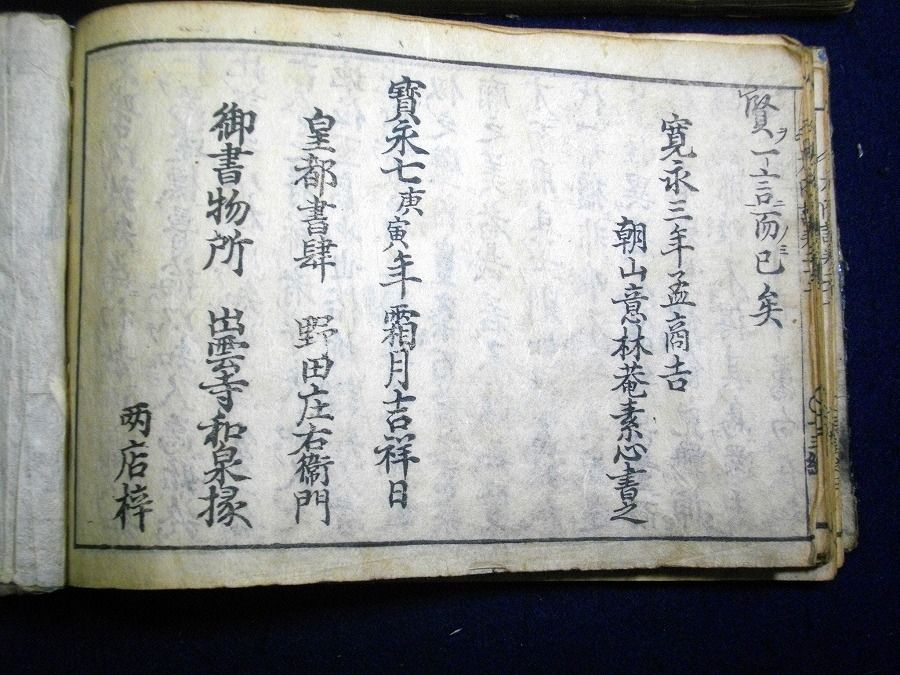 賢ヲ一言而已ノミ矣
寛永三年孟商吉
朝山意林菴素心書之
寶永七庚寅年霜月吉祥日
皇都書肆 野田庄右衛門
御書物所 出雲寺和泉掾
両店梓